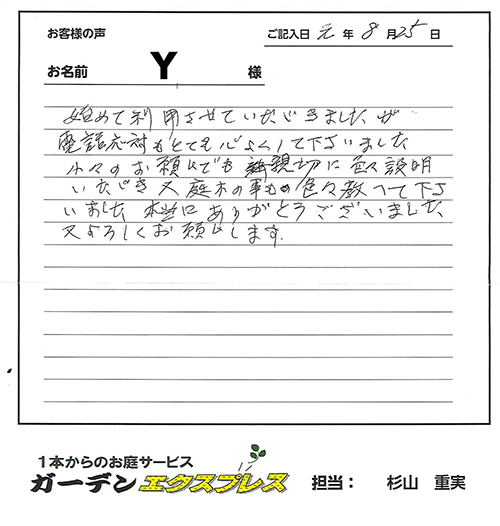 お客様の声
ご記入日 元 年 8 月 25 日
お名前 Y 様
始めて利用させていただきましたが
電話応対もとても心よくして下さいました
小々のお願いでも親切に色々説明
いただき又庭木の事も色々教へて下さ
いました 本当にありがとうございました
又よろしくお願いします.
1本からのお庭サービス
ガーデンエクスプレス 担当： 杉山 重実